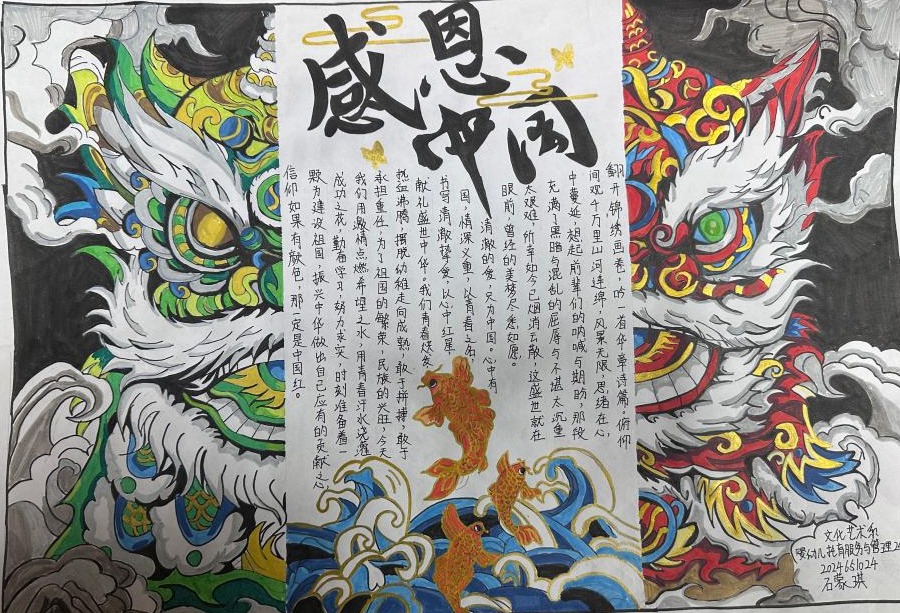 感恩
中国
翻开锦绣画卷，吟一首华章诗篇。俯仰
间观千万里山河连绵，风景无限，思绪在心
中蔓延，想起前辈们的呐喊与期盼，那段
充满了黑暗与混乱的屈辱与不堪太沉重
太艰难，所幸如今已烟消云散，这盛世就在
眼前，曾经的美梦尽悉如愿。
清澈的爱，只为中国。心中有
国，情深义重，以青春之名，
书写清澈挚爱，以心中红星
献礼盛世中华。我们青春焕发，
热血沸腾，摆脱幼稚走向成熟，敢于拼搏，敢于
承担重任，为了祖国的繁荣，民族的兴旺，今天
我们用激情点燃希望之火，用青春汗水浇灌
成功之花，勤奋学习，努力求实，时刻准备着一
颗为建设祖国，振兴中华做出自己应有的贡献之心
信仰如果有颜色，那一定是中国红。
文化艺术系
婴幼儿托育服务与管理
石蒙琪